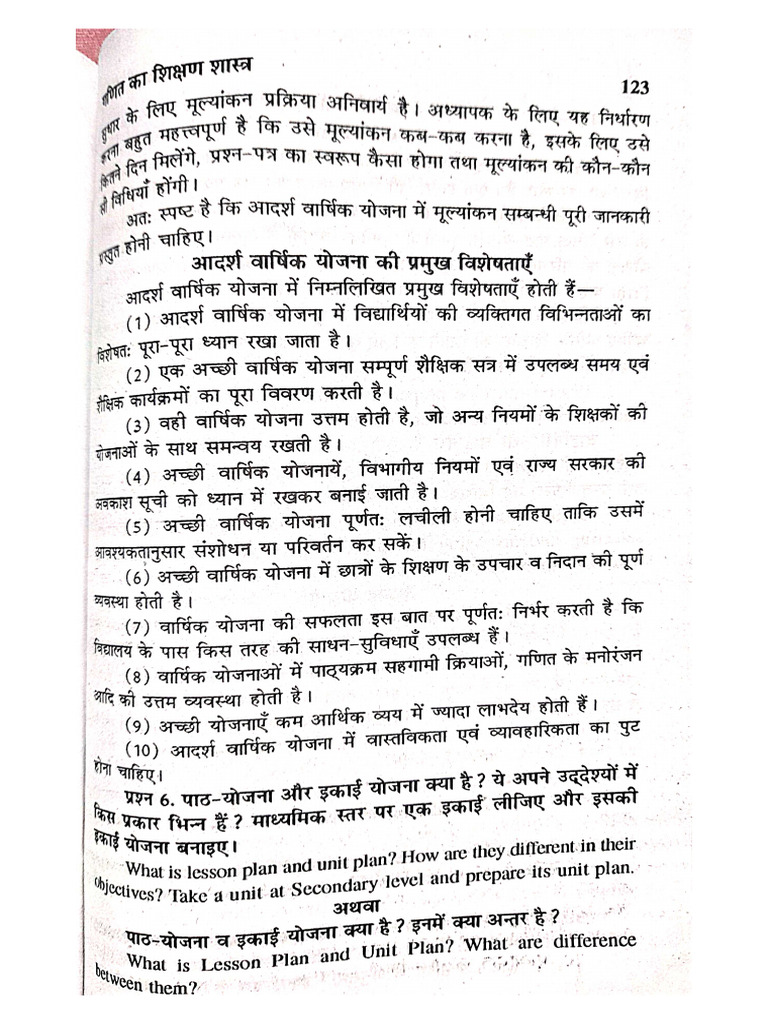 गणित का शिक्षण शास्त्र
123
सुधार के लिए मूल्यांकन प्रक्रिया अनिवार्य है। अध्यापक के लिए यह निर्धारण
करना बहुत महत्त्वपूर्ण है कि उसे मूल्यांकन कब-कब करना है, इसके लिए उसे
कितने दिन मिलेंगे, प्रश्न-पत्र का स्वरूप कैसा होगा तथा मूल्यांकन की कौन-कौन
सी विधियाँ होंगी।
अतः स्पष्ट है कि आदर्श वार्षिक योजना में मूल्यांकन सम्बन्धी पूरी जानकारी
प्रस्तुत होनी चाहिए।
आदर्श वार्षिक योजना की प्रमुख विशेषताएँ
आदर्श वार्षिक योजना में निम्नलिखित प्रमुख विशेषताएँ होती हैं—
(1) आदर्श वार्षिक योजना में विद्यार्थियों की व्यक्तिगत विभिन्नताओं का
विशेषतः पूरा-पूरा ध्यान रखा जाता है।
(2) एक अच्छी वार्षिक योजना सम्पूर्ण शैक्षिक सत्र में उपलब्ध समय एवं
शैक्षिक कार्यक्रमों का पूरा विवरण करती है।
(3) वही वार्षिक योजना उत्तम होती है, जो अन्य नियमों के शिक्षकों की
योजनाओं के साथ समन्वय रखती है।
(4) अच्छी वार्षिक योजनायें, विभागीय नियमों एवं राज्य सरकार की
अवकाश सूची को ध्यान में रखकर बनाई जाती है।
(5) अच्छी वार्षिक योजना पूर्णतः लचीली होनी चाहिए ताकि उसमें
आवश्यकतानुसार संशोधन या परिवर्तन कर सकें।
(6) अच्छी वार्षिक योजना में छात्रों के शिक्षण के उपचार व निदान की पूर्ण
व्यवस्था होती है।
(7) वार्षिक योजना की सफलता इस बात पर पूर्णतः निर्भर करती है कि
विद्यालय के पास किस तरह की साधन-सुविधाएँ उपलब्ध हैं।
(8) वार्षिक योजनाओं में पाठ्यक्रम सहगामी क्रियाओं, गणित के मनोरंजन
आदि की उत्तम व्यवस्था होती है।
(9) अच्छी योजनाएँ कम आर्थिक व्यय में ज्यादा लाभदेय होती हैं।
(10) आदर्श वार्षिक योजना में वास्तविकता एवं व्यावहारिकता का पुट
होना चाहिए।
प्रश्न 6. पाठ-योजना और इकाई योजना क्या है? ये अपने उद्देश्यों में
किस प्रकार भिन्न हैं? माध्यमिक स्तर पर एक इकाई लीजिए और इसकी
इकाई योजना बनाइए।
What is lesson plan and unit plan? How are they different in their
objectives? Take a unit at Secondary level and prepare its unit plan.
अथवा
पाठ-योजना व इकाई योजना क्या है? इनमें क्या अन्तर है?
What is Lesson Plan and Unit Plan? What are difference
between them?